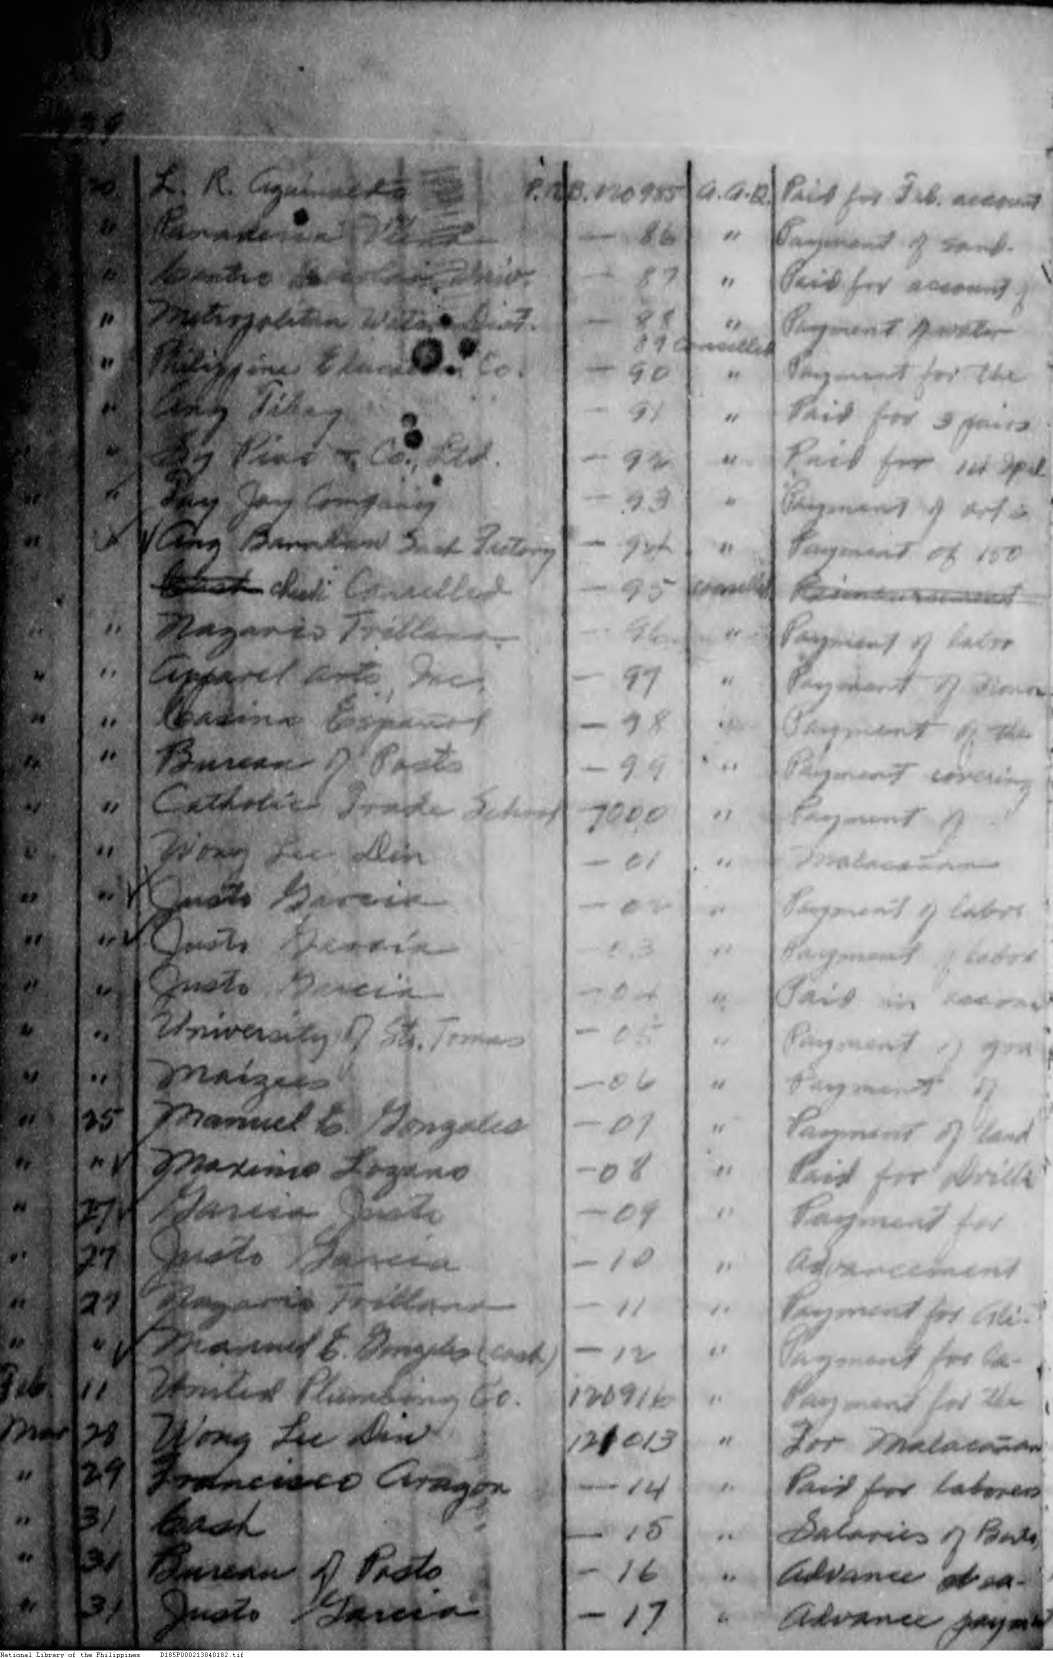 1939
20 L. R. Aguinaldo P.N.B. 120985 A.A.Q. Paid for Feb. account
" Panaderia — 86 " Payment of sand.
" Centro Escolar Univ. — 87 " Paid for account of
" Metropolitan Water Dist. — 88 " Payment of water
89 Cancelled
" Philippine Education Co. — 90 " Payment for the
" Ang Tibay — 91 " Paid for 3 pairs
" Sy Pius & Co., Ltd. — 92 " Paid for 14
" " Tay Joy Company — 93 " Payment of
" " Ang Bara Sash Factory — 94 " Payment of 150
Cash check Cancelled — 95 cancelled Reimbursement
" " Nazario Trillana — 96 " Payment of labor
" " Apparel Arts, Inc. — 97 " Payment of
" " Casino Español — 98 " Payment of the
" " Bureau of Posts — 99 " Payment covering
" " Catholic Trade School 7000 " Payment of
" " Wong Lee Din — 01 " Malacañan
" " Justo Garcia — 02 " Payment of labor
" " Justo Garcia — 03 " Payment of labor
" " Justo Garcia — 04 " Paid in
" " University of Sto. Tomas — 05 " Payment of
" " Maizees — 06 " Payment of
" 25 Manuel E. Gonzales — 07 " Payment of land
" " Maximo Lozano — 08 " Paid for
" 27 Garcia Justo — 09 " Payment for
" 27 Justo Garcia — 10 " Advancement
" 27 Nazario Trillana — 11 " Payment for
" " Manuel E. Gonzales (cash) — 12 " Payment for Ca-
Feb 11 United Plumbing Co. 120916 " Payment for the
Mar 28 Wong Lee Din 121013 " For Malacañan
" 29 Francisco Aragon — 14 " Paid for laborers
" 31 Cash — 15 " Salaries of
" 31 Bureau of Posts — 16 " Advance
" 31 Justo Garcia — 17 " Advance payment
National Library of the Philippines D185P000213840182.tif